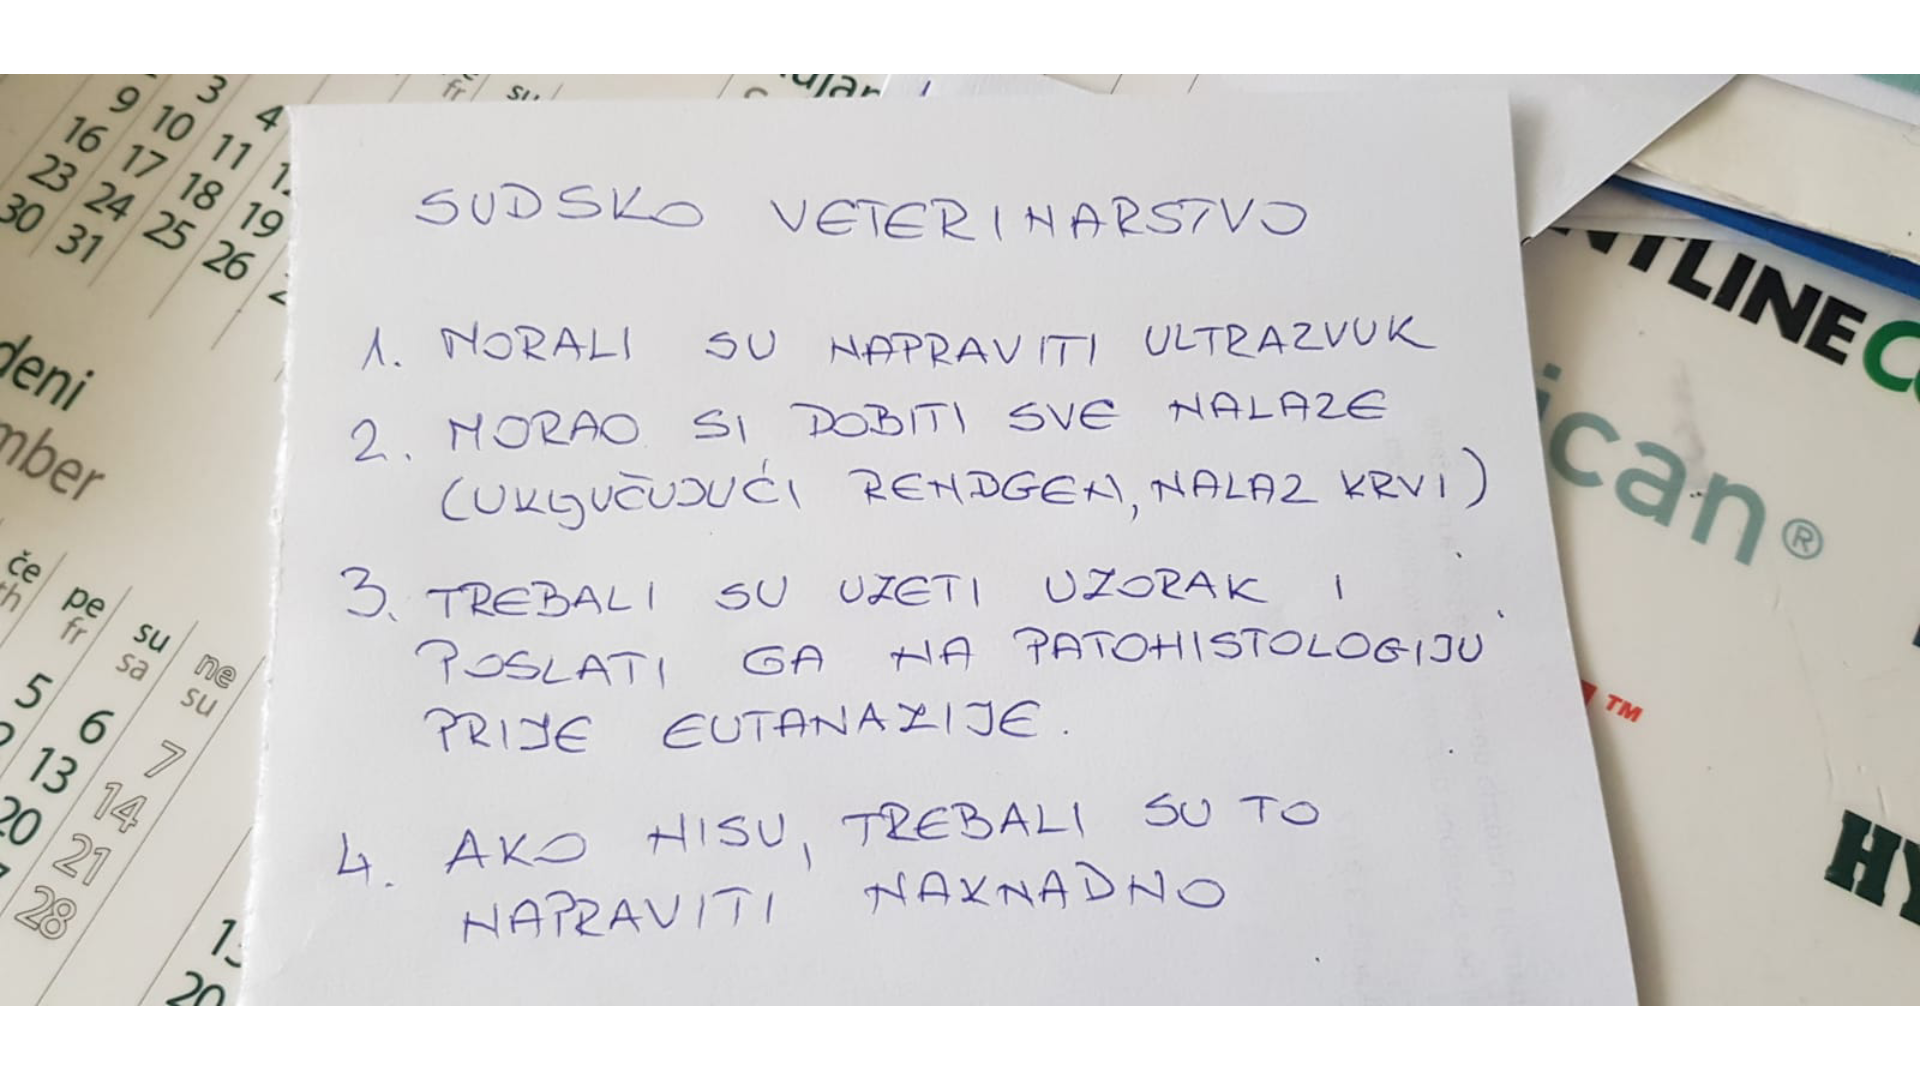 SUDSKO VETERINARSTVO
1. MORALI SU NAPRAVITI ULTRAZVUK
2. MORAO SI DOBITI SVE NALAZE
(UKLJUČUJUĆI RENDGEN, NALAZ KRVI)
3. TREBALI SU UZETI UZORAK I
POSLATI GA NA PATOHISTOLOGIJU
PRIJE EUTANAZIJE.
4. AKO NISU, TREBALI SU TO
NAPRAVITI NAKNADNO
3 4
9 10 11
16 17 18 19
23 24 25 26
30 31
fr su
deni
mber
če pe su ne
th fr sa su
5 6 7
13 14
20 21
28
20
NTLINE
ican®
TM
HY